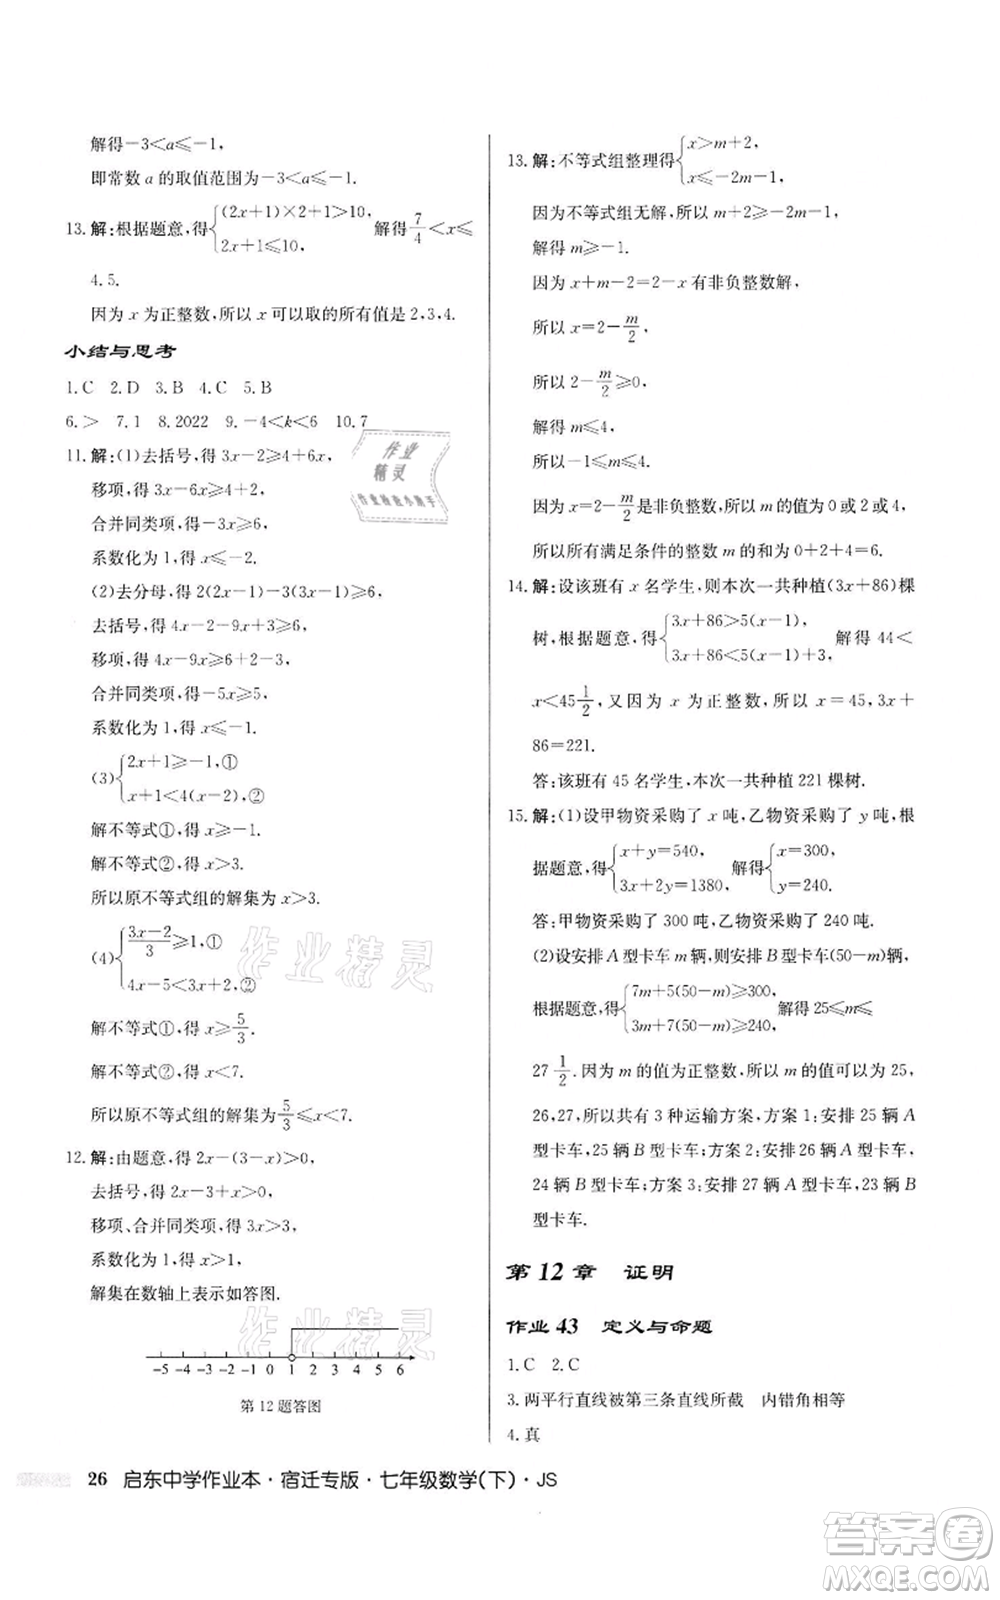 解得-3<a≤-1,
即常数 a 的取值范围为-3<a≤-1.
13. 解:根据题意,得{(2x+1)×2+1>10, 2x+1≤10, 解得7/4<x≤
4.5.
因为 x 为正整数,所以 x 可以取的所有值是 2,3,4.
小结与思考
1.C 2.D 3.B 4.C 5.B
6.> 7.1 8.2022 9.-4<k<6 10.7
11. 解:(1)去括号,得 3x-2≥4+6x,
移项,得 3x-6x≥4+2,
合并同类项,得-3x≥6,
系数化为 1,得 x≤-2.
(2)去分母,得 2(2x-1)-3(3x-1)≥6,
去括号,得 4x-2-9x+3≥6,
移项,得 4x-9x≥6+2-3,
合并同类项,得-5x≥5,
系数化为 1,得 x≤-1.
(3){2x+1≥-1,① x+1<4(x-2),②
解不等式①,得 x≥-1.
解不等式②,得 x>3.
所以原不等式组的解集为 x>3.
(4){(3x-2)/3≥1,① 4x-5<3x+2,②
解不等式①,得 x≥5/3.
解不等式②,得 x<7.
所以原不等式组的解集为5/3≤x<7.
12. 解:由题意,得 2x-(3-x)>0,
去括号,得 2x-3+x>0,
移项、合并同类项,得 3x>3,
系数化为 1,得 x>1,
解集在数轴上表示如答图.
-5 -4 -3 -2 -1 0 1 2 3 4 5 6
第 12 题答图
13. 解:不等式组整理得{x>m+2, x≤-2m-1,
因为不等式组无解,所以 m+2≥-2m-1,
解得 m≥-1.
因为 x+m-2=2-x 有非负整数解,
所以 x=2-m/2,
所以 2-m/2≥0,
解得 m≤4,
所以-1≤m≤4.
因为 x=2-m/2是非负整数,所以 m 的值为 0 或 2 或 4,
所以所有满足条件的整数 m 的和为 0+2+4=6.
14. 解:设该班有 x 名学生,则本次一共种植(3x+86)棵
树,根据题意,得{3x+86>5(x-1), 3x+86<5(x-1)+3, 解得 44<
x<45 1/2,又因为 x 为正整数,所以 x=45,3x+
86=221.
答:该班有 45 名学生,本次一共种植 221 棵树.
15. 解:(1)设甲物资采购了 x 吨,乙物资采购了 y 吨,根
据题意,得{x+y=540, 3x+2y=1380, 解得{x=300, y=240.
答:甲物资采购了 300 吨,乙物资采购了 240 吨.
(2)设安排 A 型卡车 m 辆,则安排 B 型卡车(50-m)辆,
根据题意,得{7m+5(50-m)≥300, 3m+7(50-m)≥240, 解得 25≤m≤
27 1/2.因为 m 的值为正整数,所以 m 可以为 25,
26,27,所以共有 3 种运输方案,方案 1:安排 25 辆 A
型卡车,25 辆 B 型卡车;方案 2:安排 26 辆 A 型卡车,
24 辆 B 型卡车;方案 3:安排 27 辆 A 型卡车,23 辆 B
型卡车.
第 12 章 证明
作业 43 定义与命题
1.C 2.C
3.两平行直线被第三条直线所截 内错角相等
4.真
26 启东中学作业本·宿迁专版·七年级数学(下)·JS
作业
精灵
作业精灵
作业精灵
答案卷
MXQE.COM